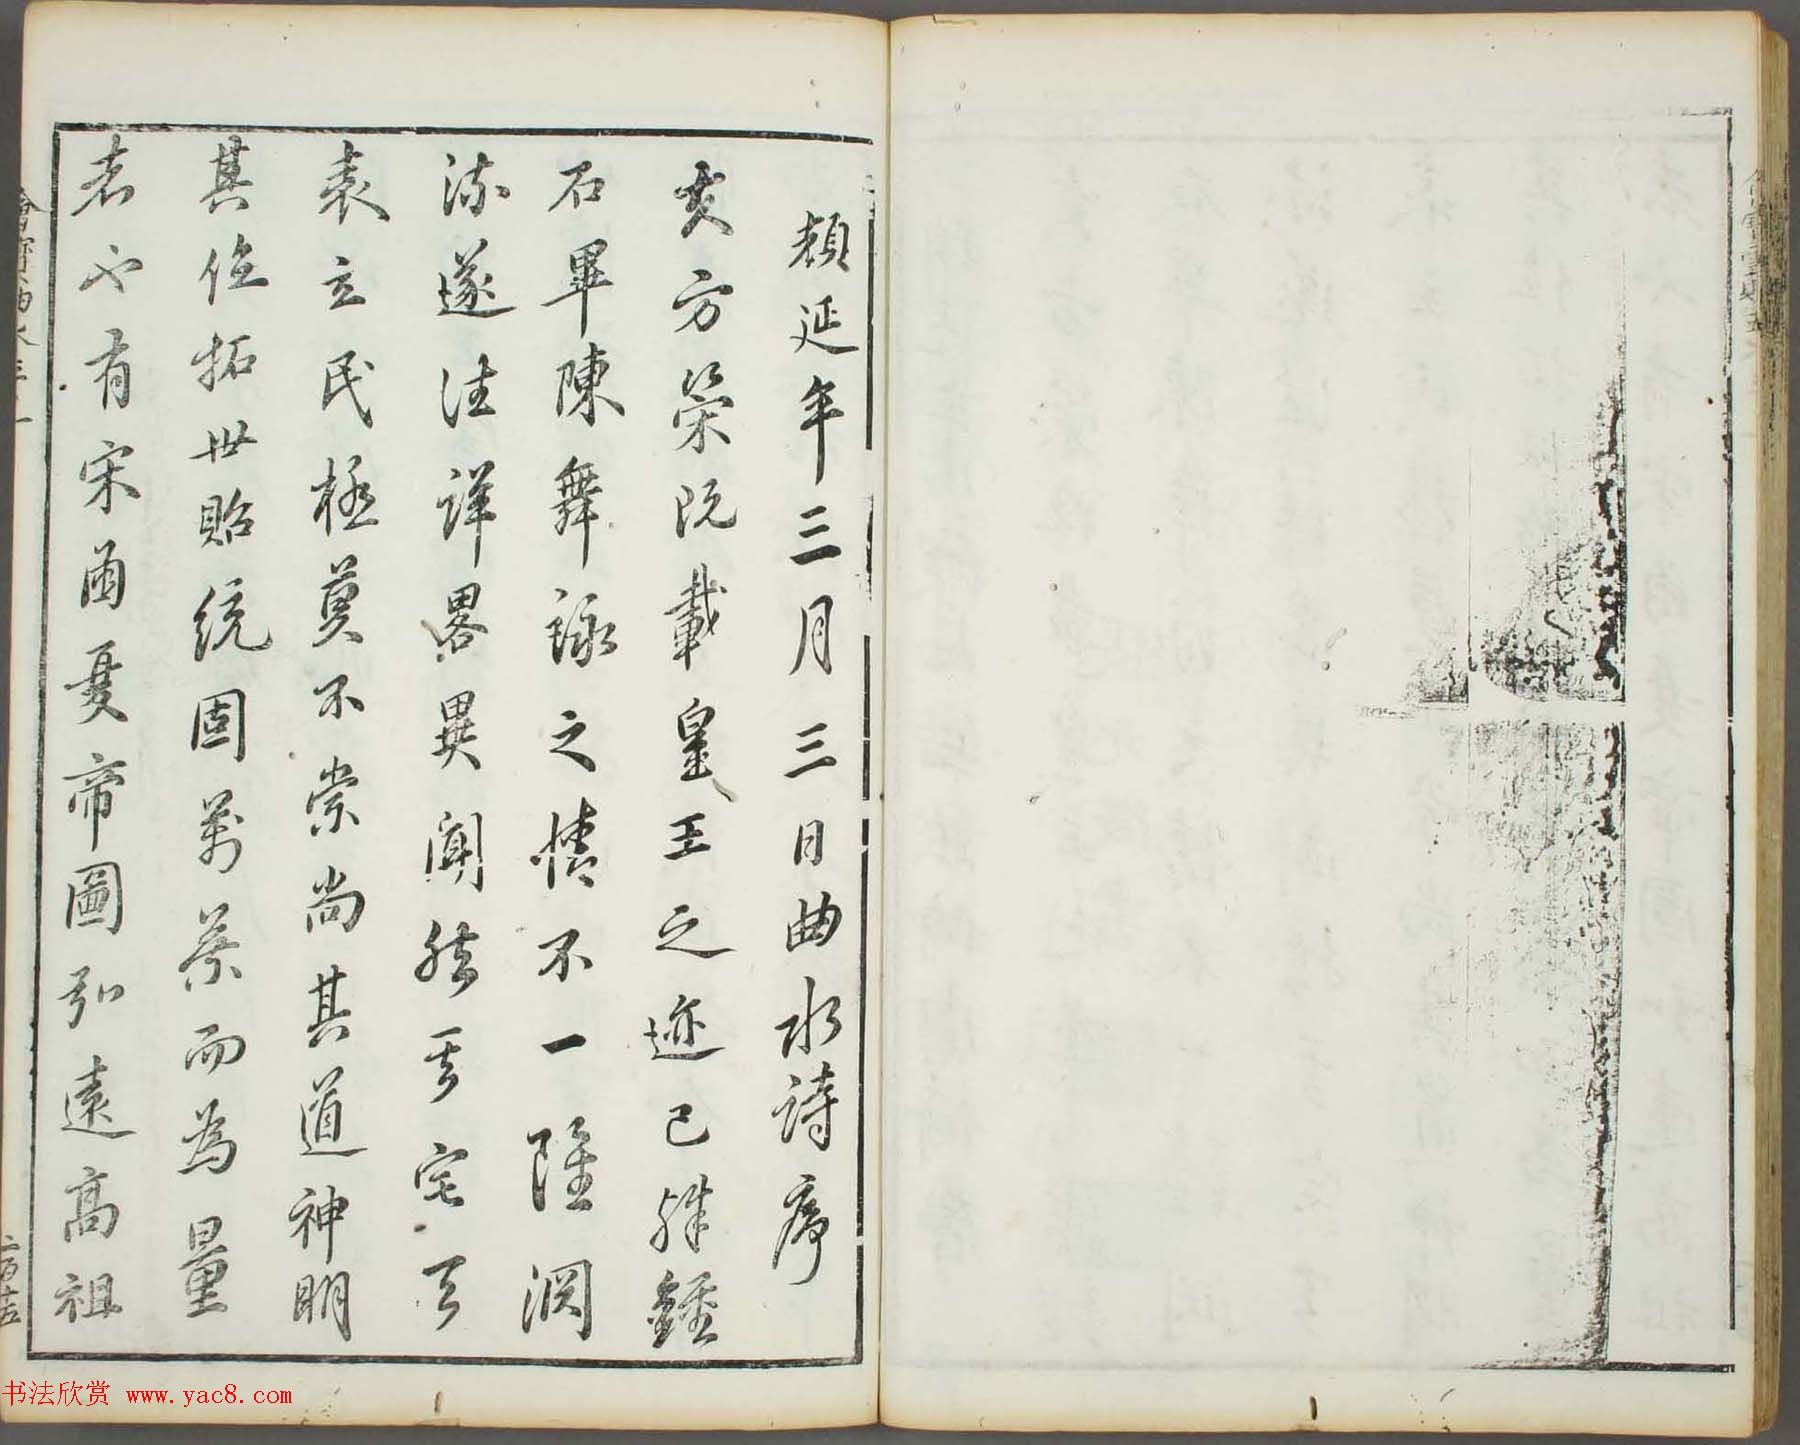 顏延年三月三日曲水詩序
夫方策既載皇王之迹已殊鍾
石畢陳舞詠之情不一雖淵
流遂往詳畧異聞然其宅天
衷立民極莫不崇尚其道神明
其位拓世貽統固萬葉而為量
者也有宋函夏帝圖弘遠高祖
书法欣赏 www.yac8.com